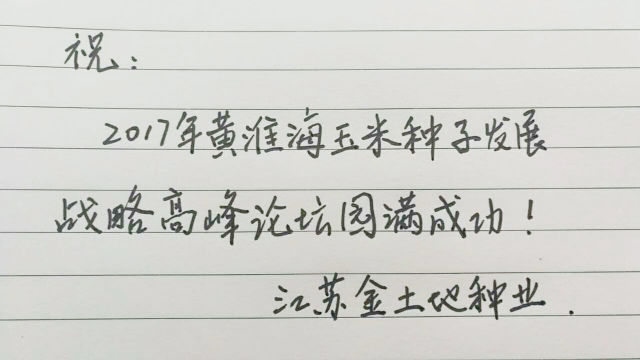 祝：
2017年黄淮海玉米种子发展
战略高峰论坛圆满成功！
江苏金土地种业.